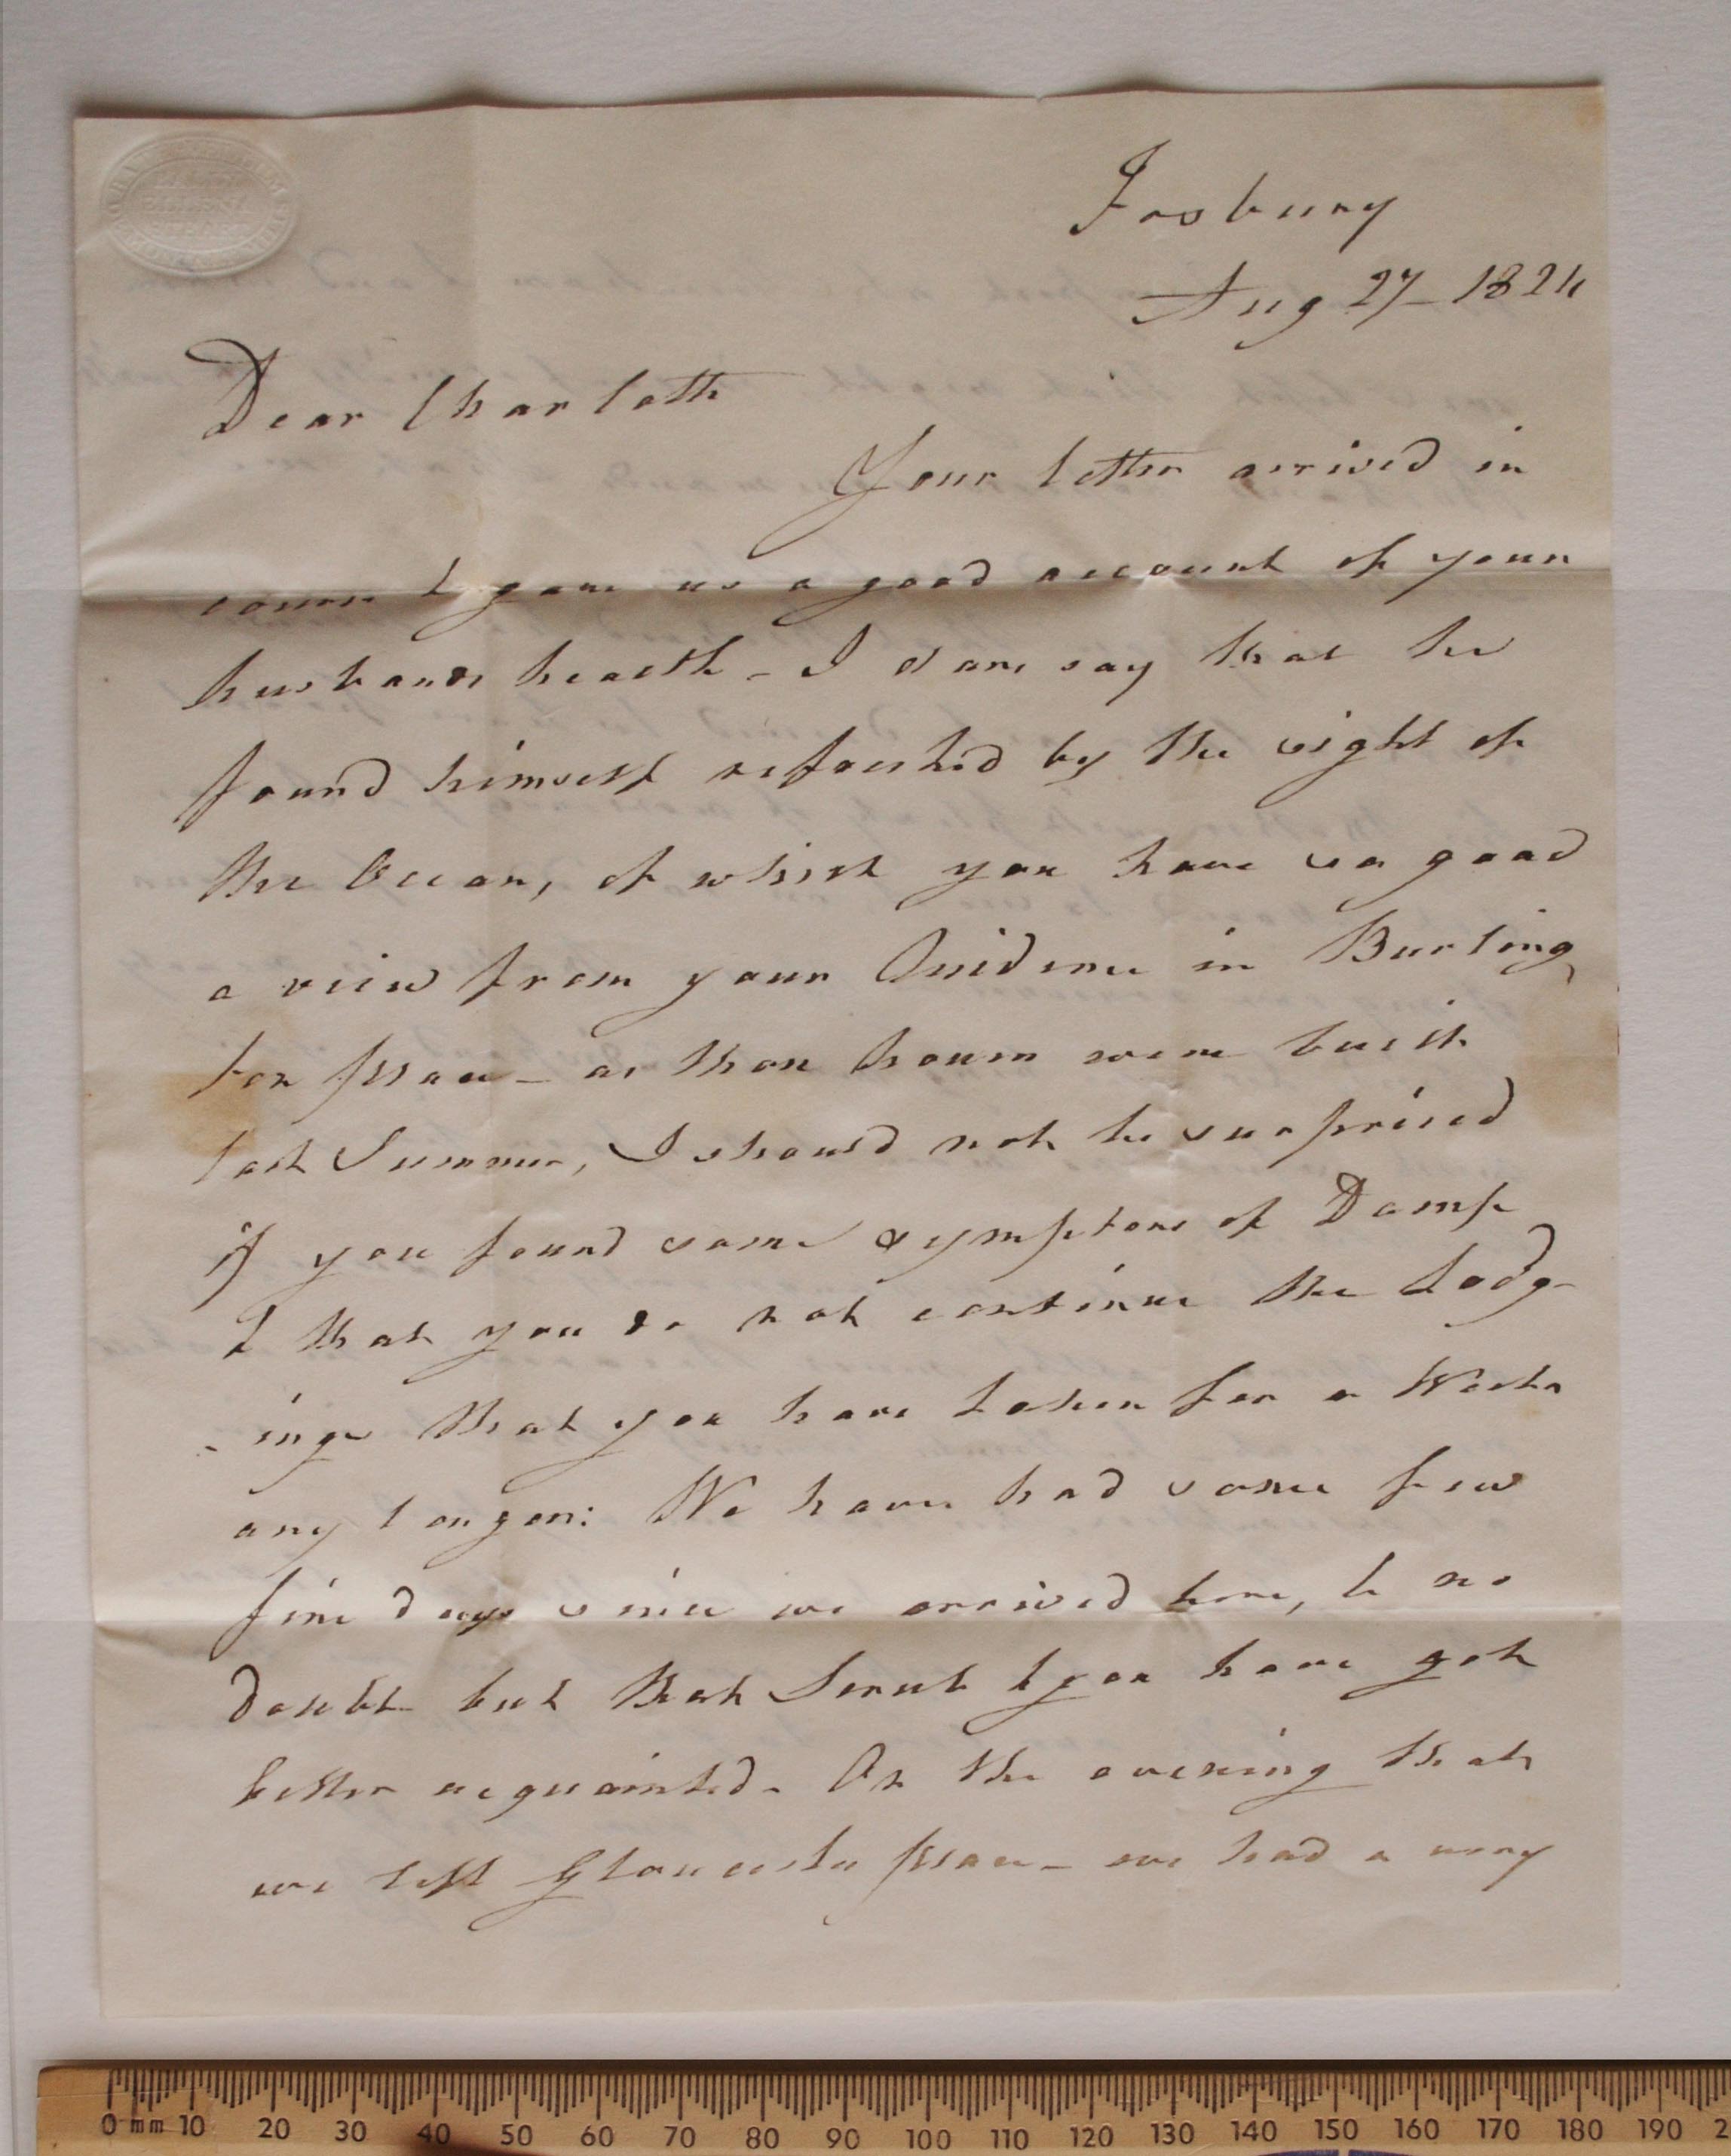 Fosbury
Aug 27 - 1824
Dear Charlotte
Your letter arrived in
course & gave us a good account of your
husbands health - I dare say that he
found himself refreshed by the sight of
the Ocean, of which you have so good
a view from your Residence in Burling
ton place - as those houses were built
last Summer, I should not be surprised
if you found some symptoms of Damp
& that you do not continue the Lodg-
-ings that you have taken for a Week
any longer: We have had some few
fine days since we arrived here, & no
doubt but that & you have got
better acquainted - On the evening that
we left Gloucester place - we had a very
ELLEN
0 mm 10 20 30 40 50 60 70 80 90 100 110 120 130 140 150 160 170 180 190 2